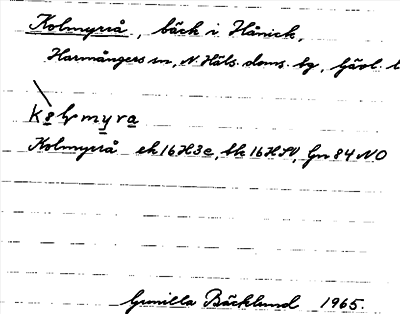 Kolmyrå, bäck i Hånick,
Harmångers sn, N. Häls. doms. bg, Gävl. l
Kolmyrå ek 16H3e, tk 16H SV, Gn 84 NO
Gunilla Bäcklund 1965.